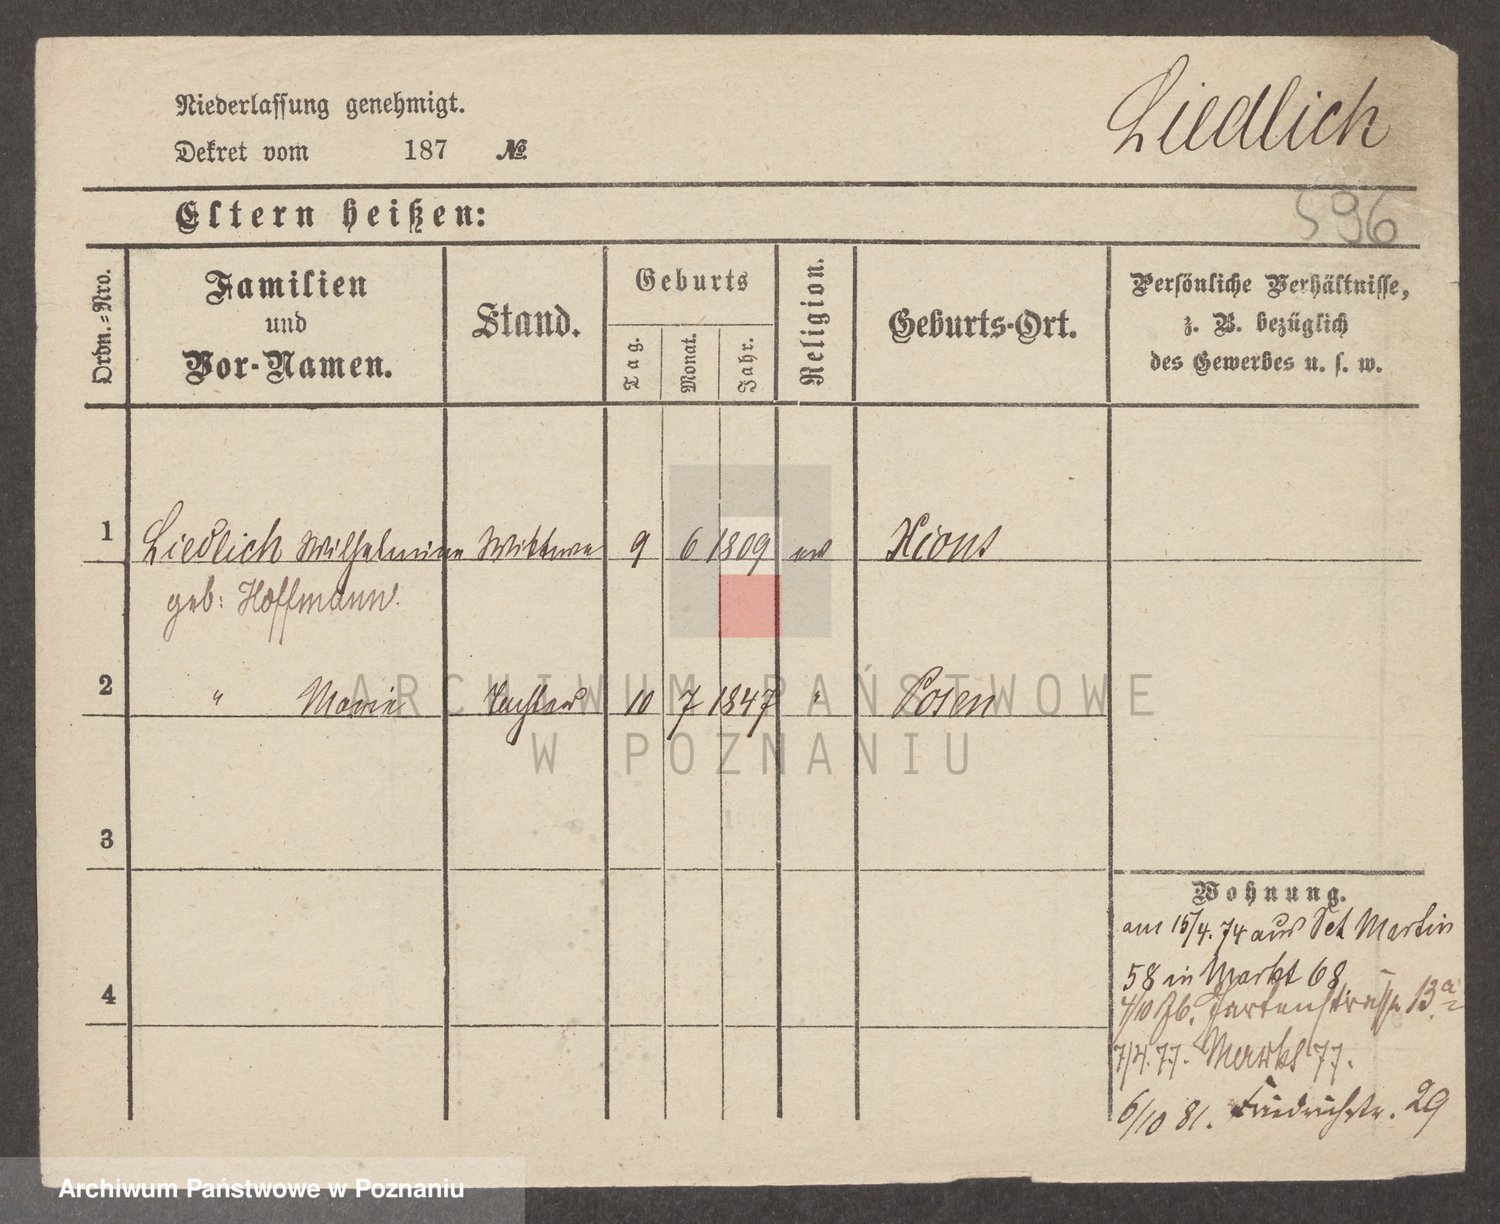 Niederlassung genehmigt.
Dekret vom 187 №
Liedlich
596
Eltern heißen:
Ordn.-Nro.
Familien und Vor-Namen.
Stand.
Geburts
Tag.
Monat.
Jahr.
Religion.
Geburts-Ort.
Persönliche Verhältnisse,
z. B. bezüglich
des Gewerbes u. s. w.
1 Liedlich Wilhelmine Wittwe 9 6 1809 ev Xions
geb: Hoffmann.
2 " Marie Tochter 10 7 1847 " Posen
3
4
Wohnung.
am 15/4. 74 aus Sct Martin
58 in Markt 68
4/10 76. Gartenstrasse 13a
7/4. 77. Markt 77.
6/10 81. Friedrichstr. 29
ARCHIWUM PAŃSTWOWE
W POZNANIU
Archiwum Państwowe w Poznaniu